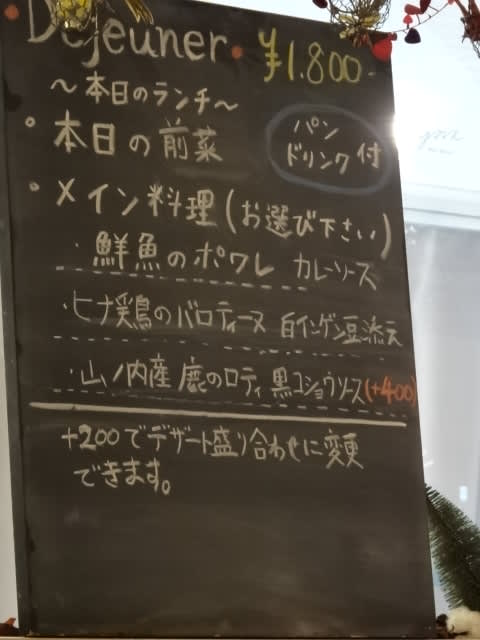 Déjeuner ¥1.800
～本日のランチ～
パン
ドリンク付
本日の前菜
・メイン料理(お選び下さい)
・鮮魚のポワレ カレーソース
・ヒナ鶏のバロティーヌ 白インゲン豆添え
・山ノ内産鹿のロティ 黒コショウソース(+400)
+200でデザート盛り合わせに変更
できます。